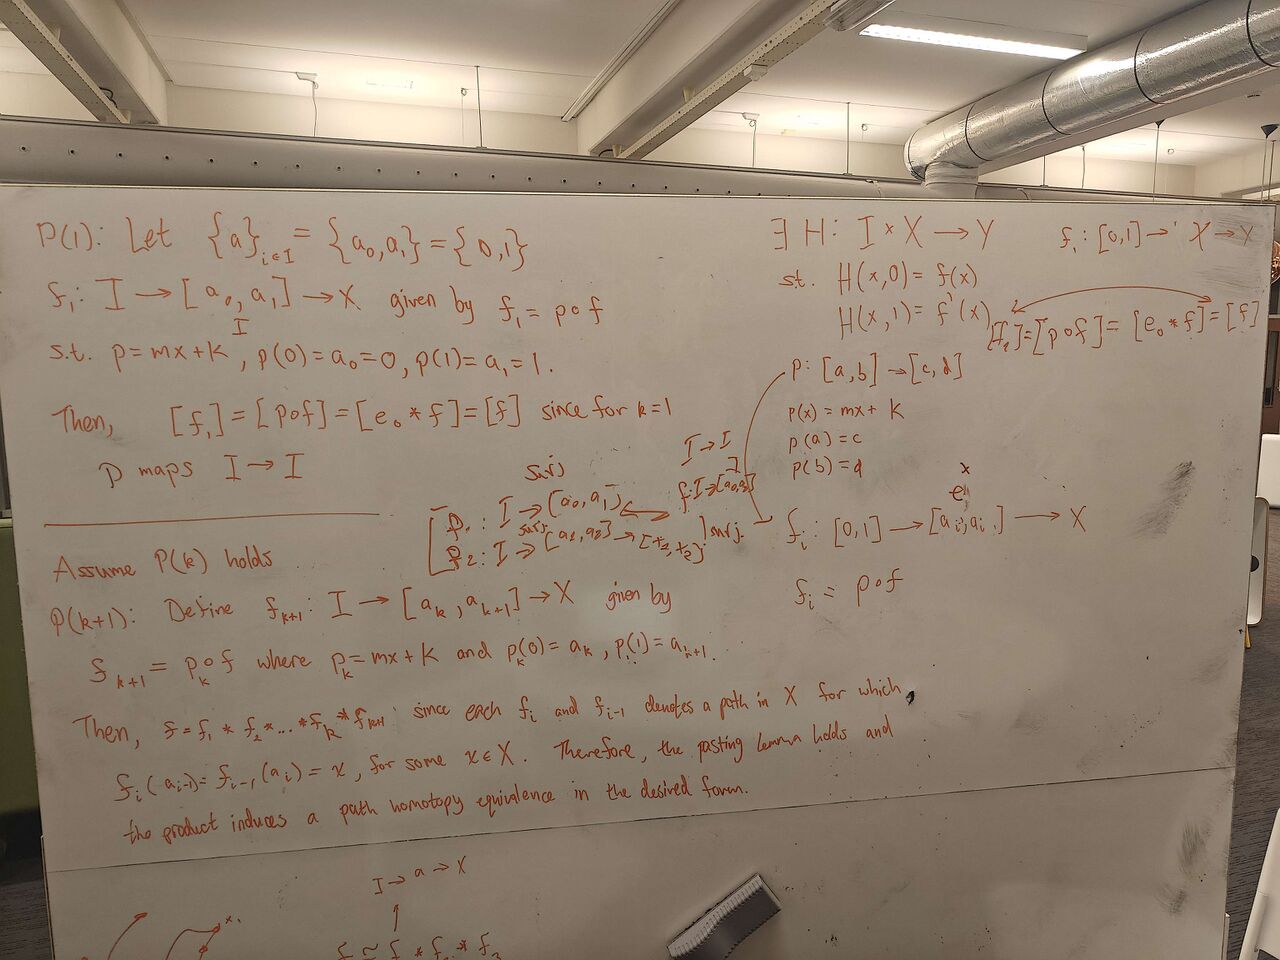 P(1): Let {a}_{i∈I} = {a₀,a₁} = {0,1}
f₁: I → [a₀,a₁] → X given by f₁ = p∘f
I
s.t. p=mx+k, p(0)=a₀=0, p(1)=a₁=1.
Then, [f₁]=[p∘f]=[e₀*f]=[f] since for k=1
p maps I → I
Assume P(k) holds
P(k+1): Define f_{k+1}: I → [a_k, a_{k+1}] → X given by
f_{k+1} = p_k∘f where p_k=mx+k and p_k(0)=a_k, p_k(1)=a_{k+1}.
Then, f=f₁*f₂*...*f_k*f_{k+1} since each f_i and f_{i-1} denotes a path in X for which,
f_i(a_{i-1})=f_{i-1}(a_i)=x, for some x∈X. Therefore, the pasting lemma holds and
the product induces a path homotopy equivalence in the desired form.
surj
I → I
P₁: I → [a₀,a₁]
f: I → [a₀,a₂]
surj
P₂: I → [a₁,a₂] →
] surj.
∃ H: I × X → Y
s.t. H(x,0) = f(x)
H(x,1) = f'(x)
f_i: [0,1] → X → Y
=[p∘f]=[e₀*f]=[f]
p: [a,b] → [c,d]
p(x) = mx+k
p(a) = c
p(b) = d
x
e
f_i: [0,1] → [a_i,a_i] → X
f_i = p∘f
I → a → X
x₁
f ≃ f * f₂ * f₃